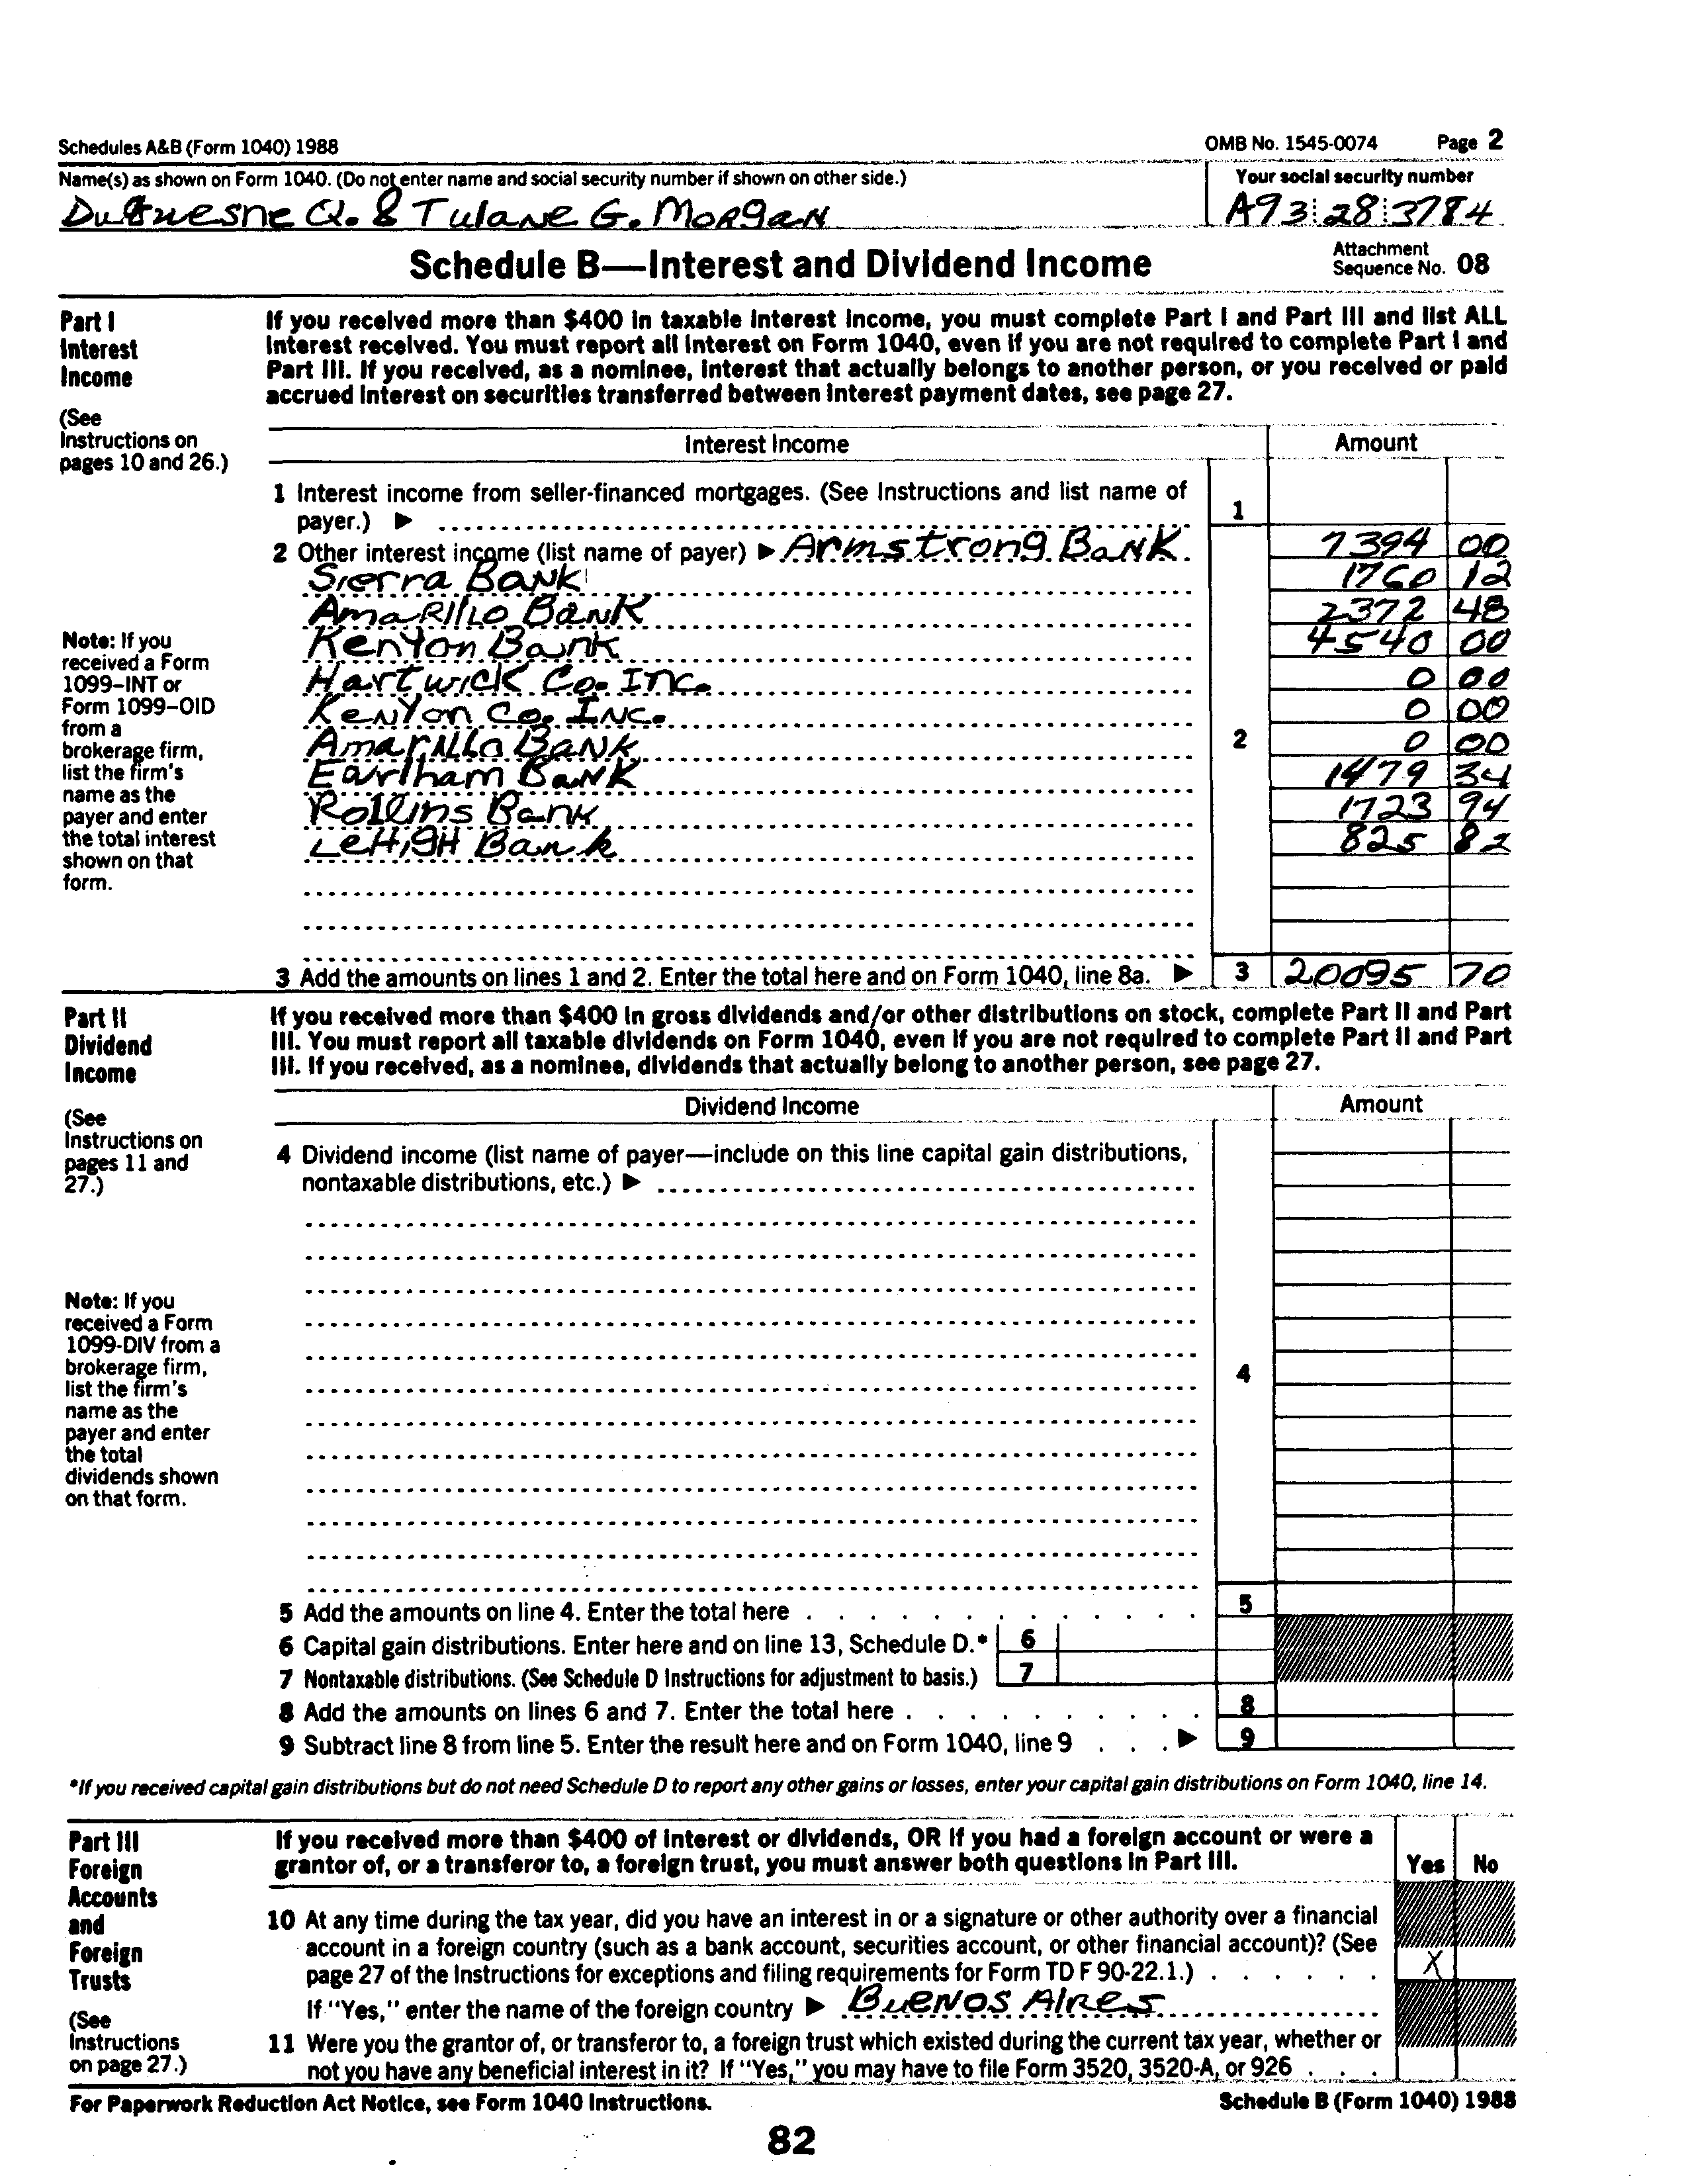 Schedules A&B (Form 1040) 1988 OMB No. 1545-0074 Page 2
Name(s) as shown on Form 1040. (Do not enter name and social security number if shown on other side.) Your social security number
Duquesne Q. & Tulane G. Morgan A93 28 3784
Schedule B—Interest and Dividend Income Attachment Sequence No. 08
Part I
Interest
Income
(See
Instructions on
pages 10 and 26.)
If you received more than $400 in taxable interest income, you must complete Part I and Part III and list ALL
interest received. You must report all interest on Form 1040, even if you are not required to complete Part I and
Part III. If you received, as a nominee, interest that actually belongs to another person, or you received or paid
accrued interest on securities transferred between interest payment dates, see page 27.
Interest Income Amount
1 Interest income from seller-financed mortgages. (See Instructions and list name of
payer.) ▶ 1
2 Other interest income (list name of payer) ▶ Armstrong Bank 7394 00
Sierra Bank 1760 12
Amarillo Bank 2372 48
Kenyon Bank 4540 00
Hartwick Co. Inc. 0 00
Kenyon Co. Inc. 0 00
Amarillo Bank 2 0 00
Earlham Bank 1479 34
Rollins Bank 1723 94
Lehigh Bank 825 82
Note: If you
received a Form
1099–INT or
Form 1099–OID
from a
brokerage firm,
list the firm's
name as the
payer and enter
the total interest
shown on that
form.
3 Add the amounts on lines 1 and 2. Enter the total here and on Form 1040, line 8a. ▶ 3 20095 70
Part II
Dividend
Income
(See
Instructions on
pages 11 and
27.)
If you received more than $400 in gross dividends and/or other distributions on stock, complete Part II and Part
III. You must report all taxable dividends on Form 1040, even if you are not required to complete Part II and Part
III. If you received, as a nominee, dividends that actually belong to another person, see page 27.
Dividend Income Amount
4 Dividend income (list name of payer—include on this line capital gain distributions,
nontaxable distributions, etc.) ▶
4
Note: If you
received a Form
1099-DIV from a
brokerage firm,
list the firm's
name as the
payer and enter
the total
dividends shown
on that form.
5 Add the amounts on line 4. Enter the total here 5
6 Capital gain distributions. Enter here and on line 13, Schedule D.* 6
7 Nontaxable distributions. (See Schedule D Instructions for adjustment to basis.) 7
8 Add the amounts on lines 6 and 7. Enter the total here 8
9 Subtract line 8 from line 5. Enter the result here and on Form 1040, line 9 ▶ 9
*If you received capital gain distributions but do not need Schedule D to report any other gains or losses, enter your capital gain distributions on Form 1040, line 14.
Part III
Foreign
Accounts
and
Foreign
Trusts
(See
Instructions
on page 27.)
If you received more than $400 of interest or dividends, OR if you had a foreign account or were a
grantor of, or a transferor to, a foreign trust, you must answer both questions in Part III. Yes No
10 At any time during the tax year, did you have an interest in or a signature or other authority over a financial
account in a foreign country (such as a bank account, securities account, or other financial account)? (See
page 27 of the Instructions for exceptions and filing requirements for Form TD F 90-22.1.) X
If "Yes," enter the name of the foreign country ▶ Buenos Aires
11 Were you the grantor of, or transferor to, a foreign trust which existed during the current tax year, whether or
not you have any beneficial interest in it? If "Yes," you may have to file Form 3520, 3520-A, or 926
For Paperwork Reduction Act Notice, see Form 1040 Instructions. Schedule B (Form 1040) 1988
82